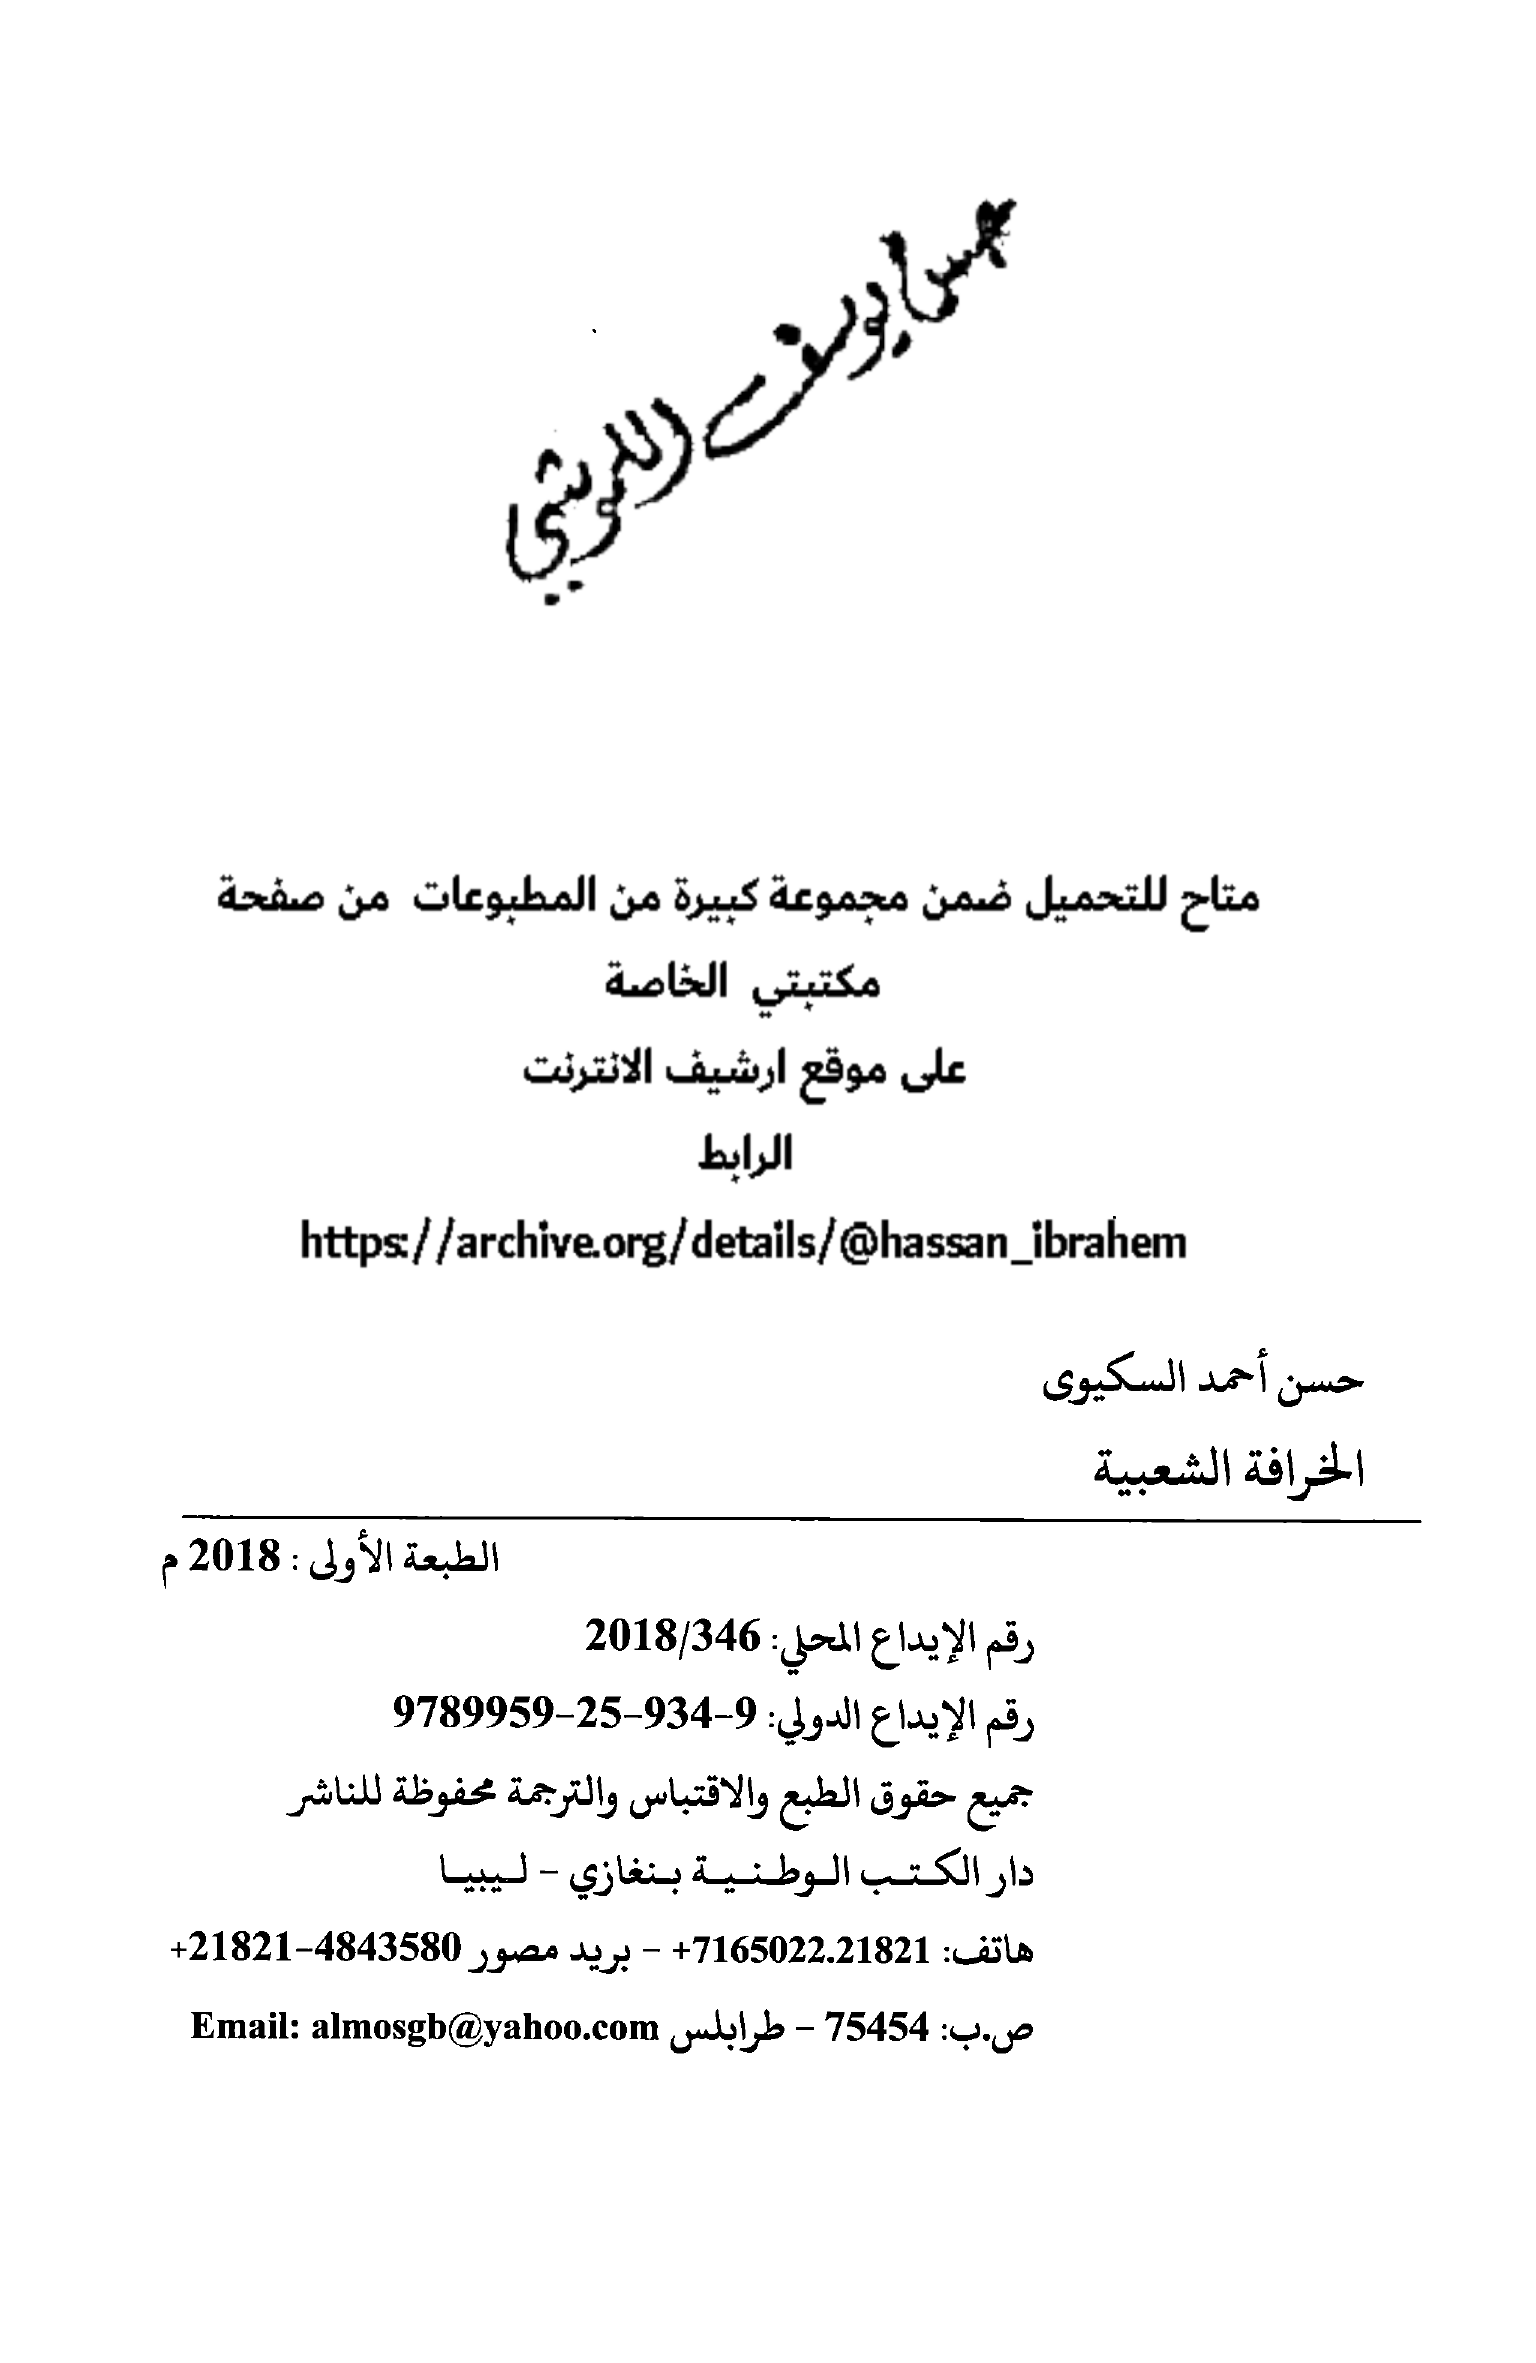 يوسف
متاح للتحميل ضمن مجموعة كبيرة من المطبوعات من صفحة
مكتبتي الخاصة
على موقع ارشيف الانترنت
الرابط
https://archive.org/details/@hassan_ibrahem
حسن أحمد السكيوى
الخرافة الشعبية
الطبعة الأولى : 2018 م
رقم الإيداع المحلي: 2018/346
رقم الإيداع الدولي: 9789959-25-934-9
جميع حقوق الطبع والاقتباس والترجمة محفوظة للناشر
دار الكتب الوطنية بنغازي - ليبيا
هاتف: 7165022.21821+ - بريد مصور 4843580-21821+
ص.ب: 75454 - طرابلس Email: almosgb@yahoo.com